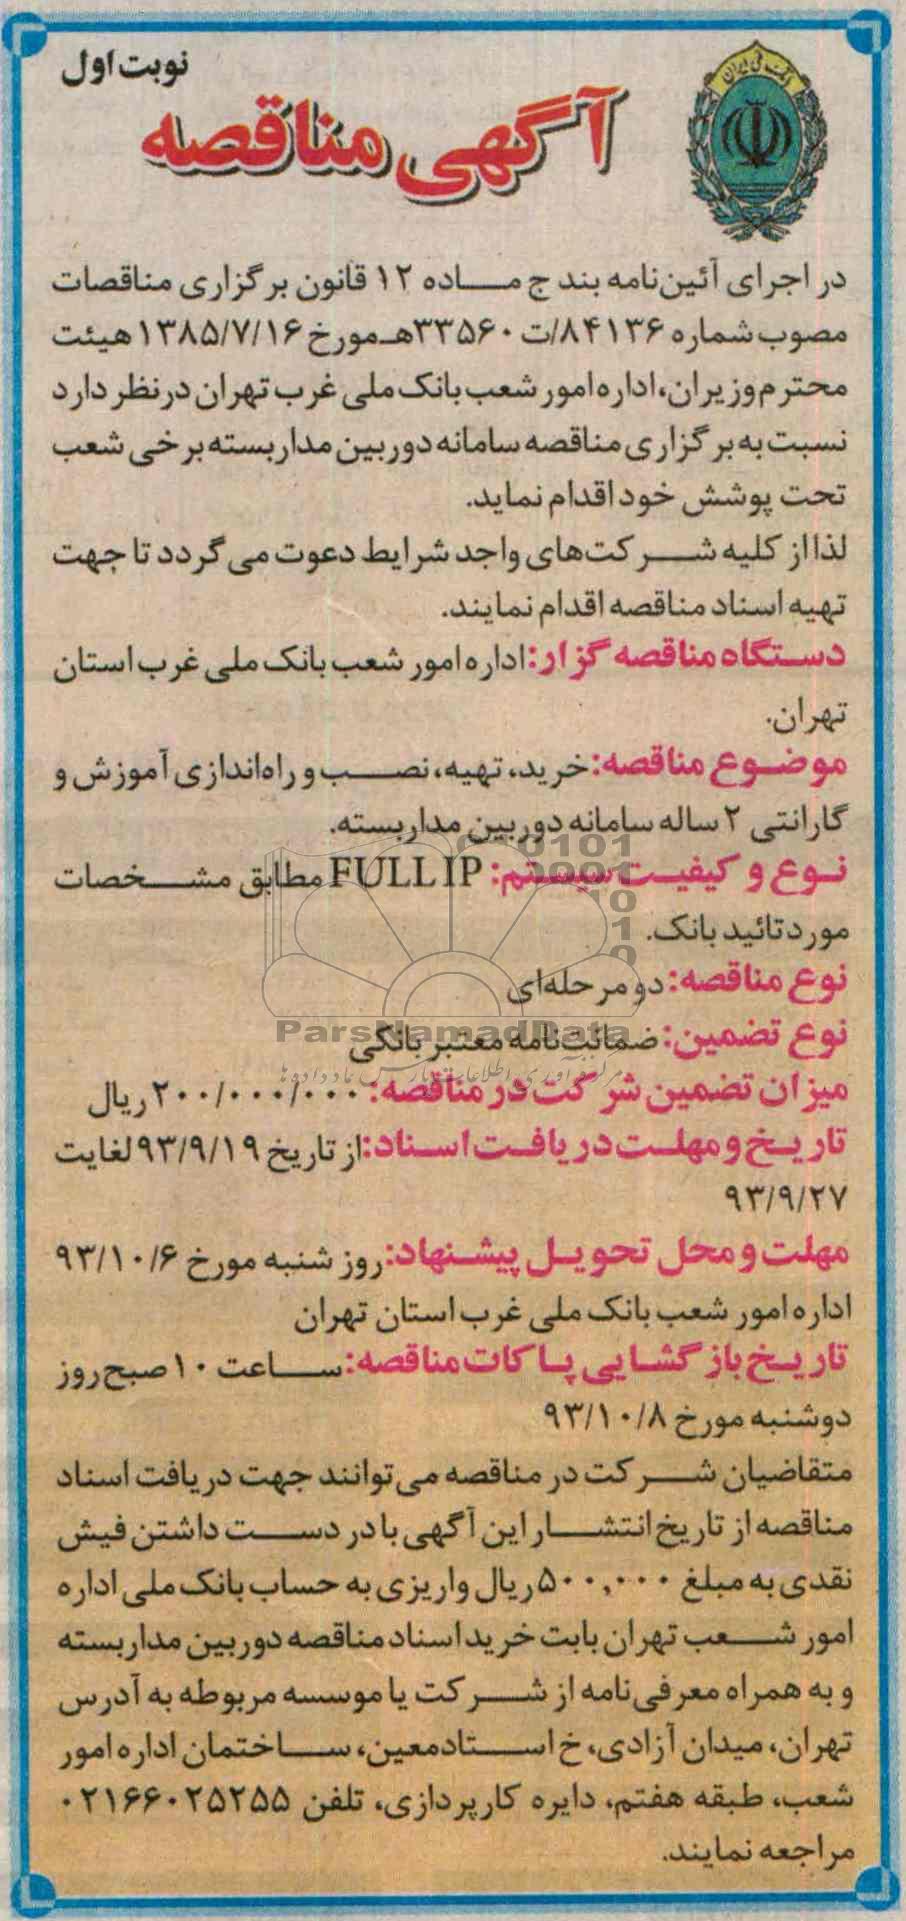 بانک ملی ایران
نوبت اول
آگهی مناقصه
در اجرای آئین‌نامه بند ج ماده ۱۲ قانون برگزاری مناقصات
مصوب شماره ۸۴۱۳۶/ت۳۳۵۶۰هـ مورخ ۱۳۸۵/۷/۱۶ هیئت
محترم وزیران، اداره امور شعب بانک ملی غرب تهران در نظر دارد
نسبت به برگزاری مناقصه سامانه دوربین مداربسته برخی شعب
تحت پوشش خود اقدام نماید.
لذا از کلیه شرکت‌های واجد شرایط دعوت می گردد تا جهت
تهیه اسناد مناقصه اقدام نمایند.
دستگاه مناقصه گزار: اداره امور شعب بانک ملی غرب استان
تهران.
موضوع مناقصه: خرید، تهیه، نصب و راه‌اندازی آموزش و
گارانتی ۲ ساله سامانه دوربین مداربسته.
نوع و کیفیت سیستم: FULL IP مطابق مشخصات
مورد تائید بانک.
نوع مناقصه: دو مرحله‌ای
نوع تضمین: ضمانت‌نامه معتبر بانکی
میزان تضمین شرکت در مناقصه: ۲۰۰/۰۰۰/۰۰۰ ریال
تاریخ و مهلت دریافت اسناد: از تاریخ ۹۳/۹/۱۹ لغایت
۹۳/۹/۲۷
مهلت و محل تحویل پیشنهاد: روز شنبه مورخ ۹۳/۱۰/۶
اداره امور شعب بانک ملی غرب استان تهران
تاریخ بازگشایی پاکات مناقصه: ساعت ۱۰ صبح روز
دوشنبه مورخ ۹۳/۱۰/۸
متقاضیان شرکت در مناقصه می توانند جهت دریافت اسناد
مناقصه از تاریخ انتشار این آگهی با در دست داشتن فیش
نقدی به مبلغ ۵۰۰,۰۰۰ ریال واریزی به حساب بانک ملی اداره
امور شعب تهران بابت خرید اسناد مناقصه دوربین مداربسته
و به همراه معرفی‌نامه از شرکت یا موسسه مربوطه به آدرس
تهران، میدان آزادی، خ استاد معین، ساختمان اداره امور
شعب، طبقه هفتم، دایره کارپردازی، تلفن ۰۲۱۶۶۰۲۵۲۵۵
مراجعه نمایند.
ParsNamadData
مرکز فرآوری اطلاعات پارس نماد داده‌ها